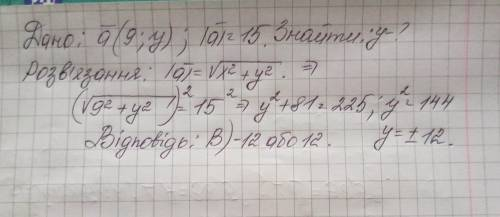 Дано: a̅(9; y); |a̅|=15. Знайти: y-?
Розв'язання: |a̅|=√x²+y². ⇒
(√9²+y²)²=15² ⇒ y²+81=225; y²=144
Відповідь: В) -12 або 12. y=±12.